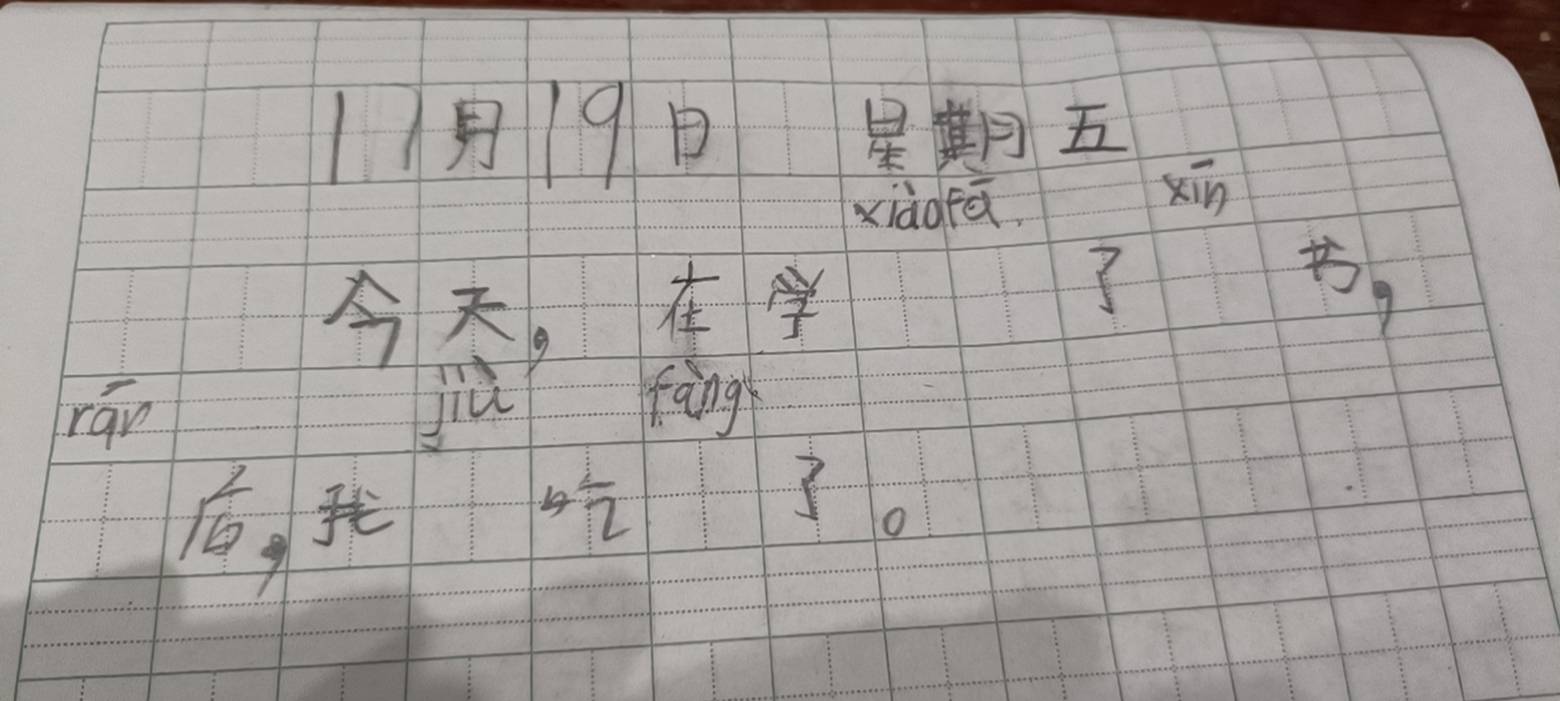 11月19日 星期五
xiào fā xīn
今天，在学 了 书，
rān jiù fàng
后，我 吃 了。